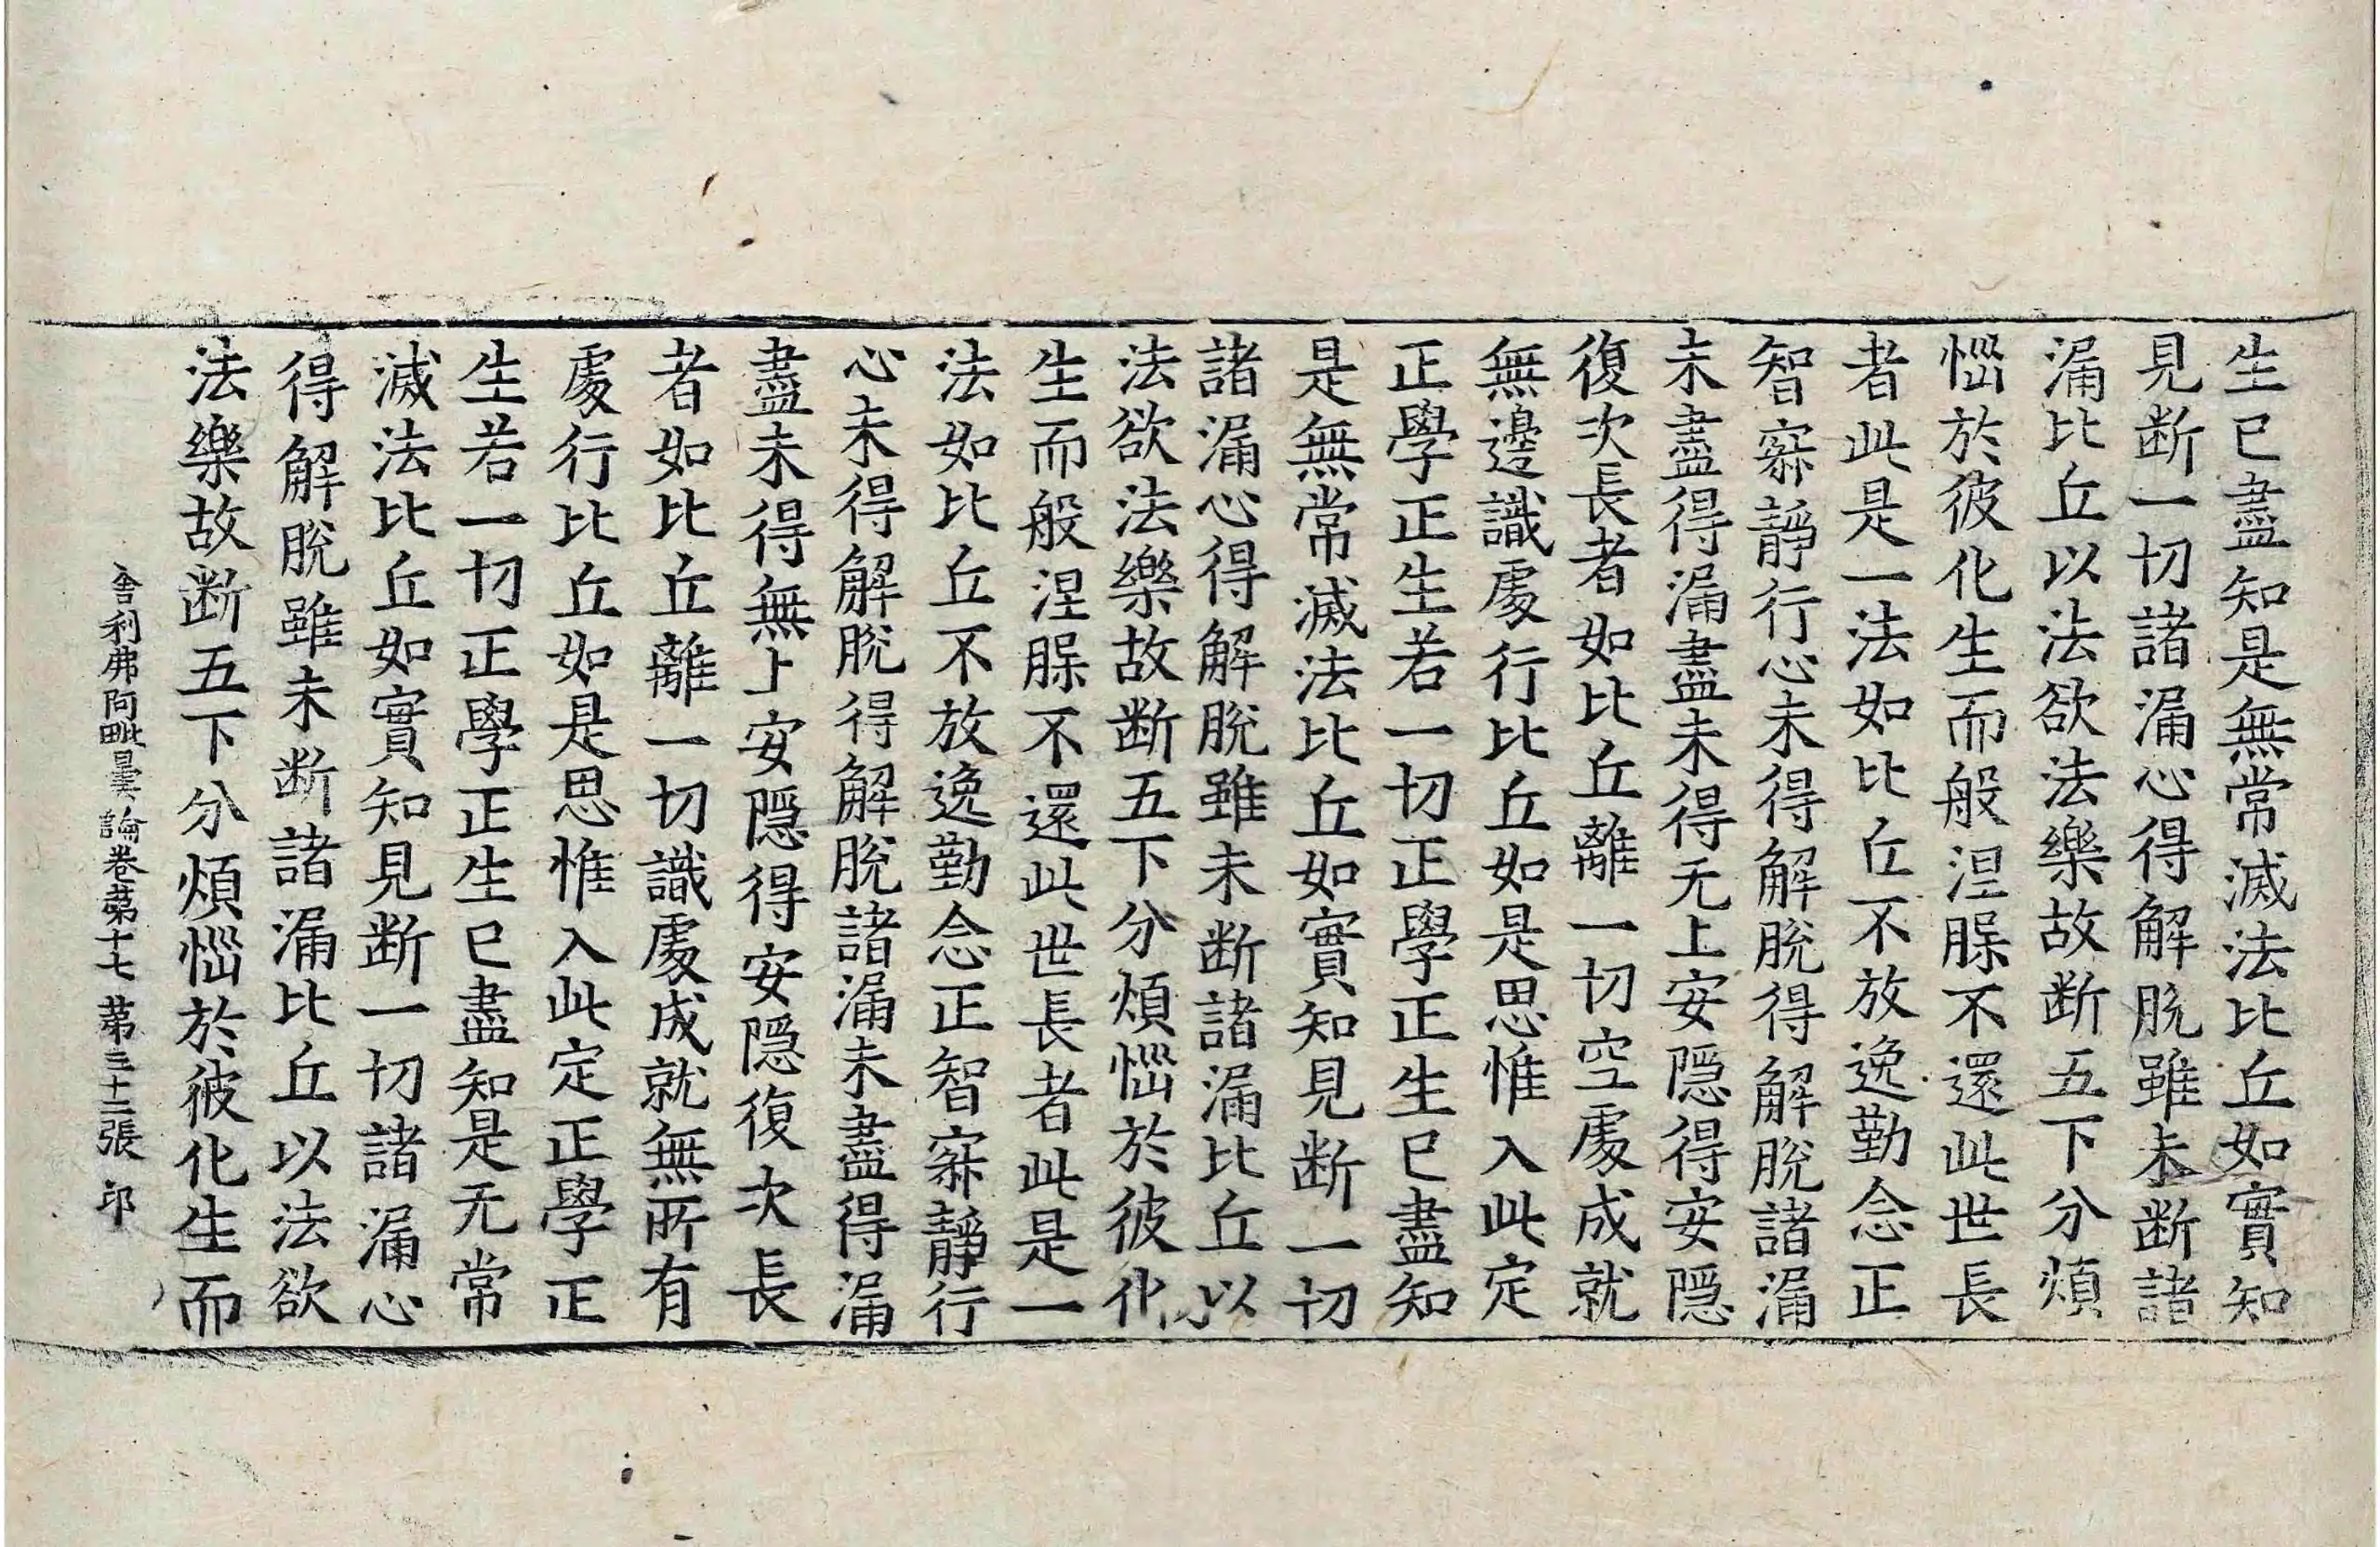 生已盡知是無常滅法比丘如實知
見断一切諸漏心得解脫雖未断諸
漏比丘以法欲法樂故断五下分煩
惱於彼化生而般涅槃不還此世長
者此是一法如比丘不放逸勤念正
智寂靜行心未得解脫得解脫諸漏
未盡得漏盡未得无上安隱得安隱
復次長者如比丘離一切空處成就
無邊識處行比丘如是思惟入此定
正學正生若一切正學正生已盡知
是無常滅法比丘如實知見断一切
諸漏心得解脫雖未断諸漏比丘以
法欲法樂故断五下分煩惱於彼化
生而般涅槃不還此世長者此是一
法如比丘不放逸勤念正智寂靜行
心未得解脫得解脫諸漏未盡得漏
盡未得無上安隱得安隱復次長
者如比丘離一切識處成就無所有
處行比丘如是思惟入此定正學正
生若一切正學正生已盡知是无常
滅法比丘如實知見断一切諸漏心
得解脫雖未断諸漏比丘以法欲
法樂故断五下分煩惱於彼化生而
舍利弗阿毗曇論卷苐十七 苐三十二張 邛